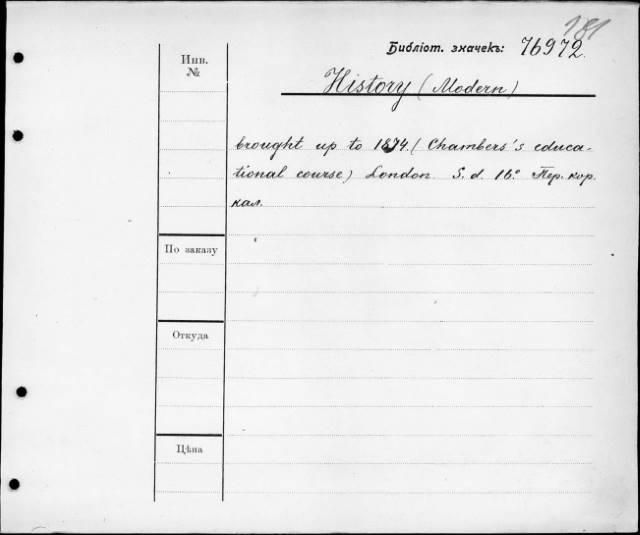 181
Библіот. значекъ: 76972.
Инв.
№
History (Modern)
brought up to 1874. (Chambers's educa-
tional course) London. S. d. 16º Пер. кор.
кал.
По заказу
Откуда
Цѣна